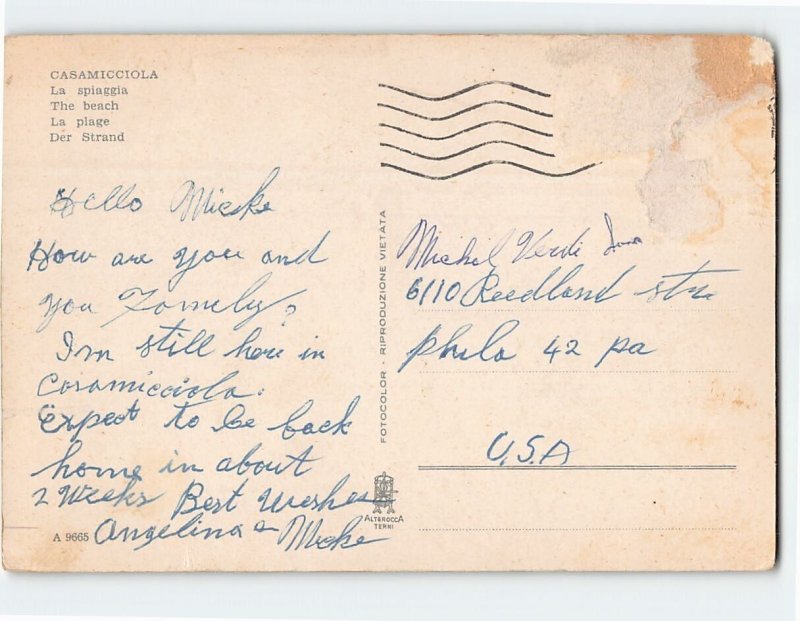 CASAMICCIOLA
La spiaggia
The beach
La plage
Der Strand
Hello Micske
How are you and
you Fomely?
I'm still here in
Casamicciola.
Expect to be back
home in about
2 Weeks Best Weshes
Angelina & Micke
A 9665
FOTOCOLOR - RIPRODUZIONE VIETATA
ALTEROCCA
TERNI
Michel Verdi
6110 Reedland str
Phila 42 pa
U.S.A